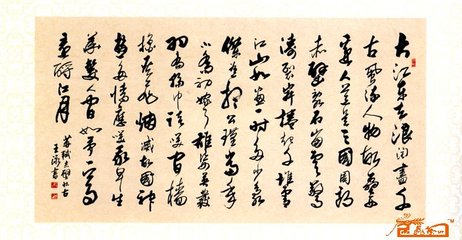 大江东去浪淘尽千
古风流人物故垒
西边人道是三国周郎
赤壁乱石崩云惊
涛裂岸捲起千堆雪
江山如画一时多少豪
杰遥想公瑾当年
小乔初嫁了雄姿英发
羽扇纶巾谈笑间樯
橹灰飞烟灭故国神
游多情应笑我早生
华发人间如梦一尊
还酹江月
苏轼赤壁怀古